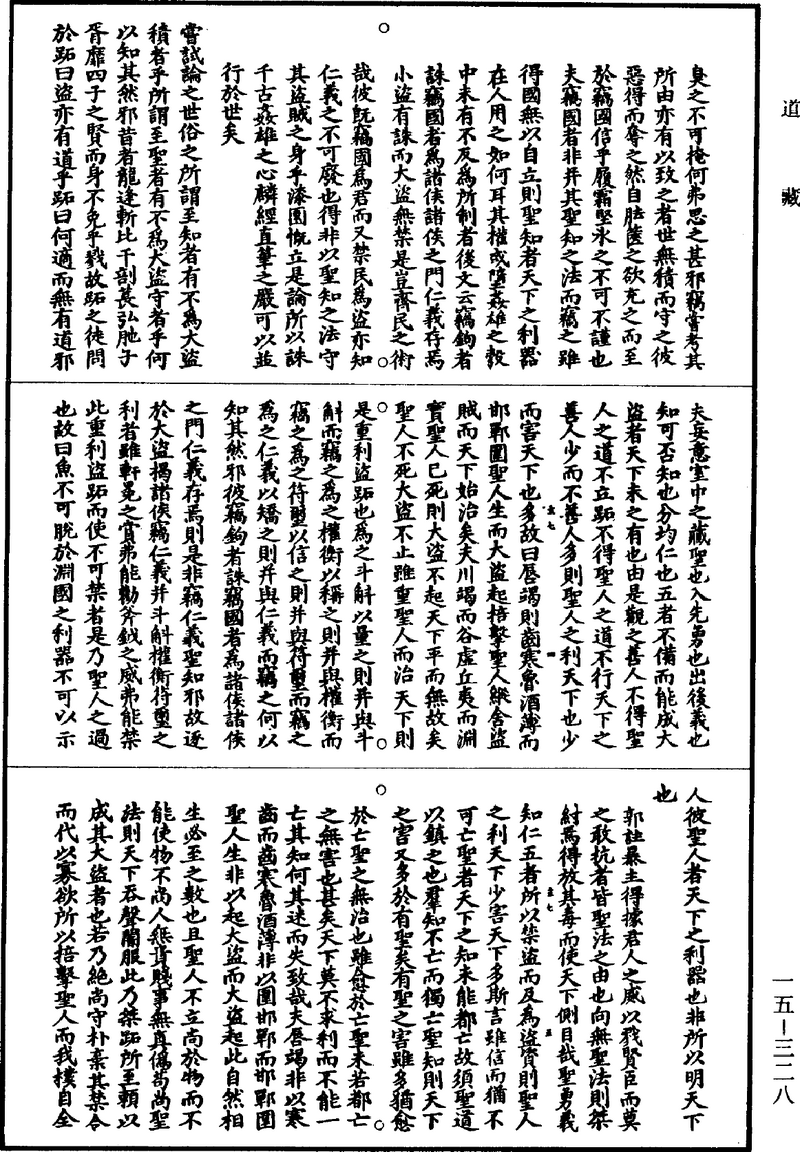 道藏
臭之不可掩何弗思之甚邪竊嘗考其
所由亦有以致之者世無積而守之彼
惡得而奪之然自胠篋之欲充之而至
於竊國信乎履霜堅冰之不可不謹也
夫竊國者非并其聖知之法而竊之雖
得國無以自立則聖知者天下之利器
在人用之如何耳其權或墮姦雄之彀
中未有不反為所制者後文云竊鉤者
誅竊國者為諸侯諸侯之門仁義存焉
小盜有誅而大盜無禁是豈齊民之術
哉彼既竊國為君而又禁民為盜亦知
仁義之不可廢也得非以聖知之法守
其盜賊之身乎漆園慨立是論所以誅
千古姦雄之心麟經直筆之嚴可以並
行於世矣
嘗試論之世俗之所謂至知者有不為大盜
積者乎所謂至聖者有不為大盜守者乎何
以知其然邪昔者龍逢斬比干剖萇弘胣子
胥靡四子之賢而身不免乎戮故跖之徒問
於跖曰盜亦有道乎跖曰何適而無有道邪
夫妄意室中之藏聖也入先勇也出後義也
知可否知也分均仁也五者不備而能成大
盜者天下未之有也由是觀之善人不得聖
人之道不立跖不得聖人之道不行天下之
善人少而不善人多則聖人之利天下也少
而害天下也多故曰唇竭則齒寒魯酒薄而
邯鄲圍聖人生而大盜起掊擊聖人縱舍盜
賊而天下始治矣夫川竭而谷虛丘夷而淵
實聖人已死則大盜不起天下平而無故矣
聖人不死大盜不止雖重聖人而治天下則
是重利盜跖也為之斗斛以量之則并與斗
斛而竊之為之權衡以稱之則并與權衡而
竊之為之符璽以信之則并與符璽而竊之
為之仁義以矯之則并與仁義而竊之何以
知其然邪彼竊鉤者誅竊國者為諸侯諸侯
之門仁義存焉則是非竊仁義聖知邪故逐
於大盜揭諸侯竊仁義并斗斛權衡符璽之
利者雖軒冕之賞弗能勸斧鉞之威弗能禁
此重利盜跖而使不可禁者是乃聖人之過
也故曰魚不可脫於淵國之利器不可以示
人彼聖人者天下之利器也非所以明天下
也
郭註暴主得據君人之威以戮賢臣而莫
之敢抗者皆聖法之由也向無聖法則桀
紂焉得放其毒而使天下側目哉聖勇義
知仁五者所以禁盜而反為盜資則聖人
之利天下少害天下多斯言雖信而猶不
可亡聖者天下之知未能都亡故須聖道
以鎮之也羣知不亡而獨亡聖知則天下
之害又多於有聖矣有聖之害雖多猶愈
於亡聖之無治也雖愈於亡聖未若都亡
之無害也甚矣天下莫不求利而不能一
亡其知何其迷而失致哉夫唇竭非以寒
齒而齒寒魯酒薄非以圍邯鄲而邯鄲圍
聖人生非以起大盜而大盜起此自然相
生必至之數也且聖人不立尚於物而不
能使物不尚人無貴賤事無真偽苟尚聖
法則天下吞聲闇服此乃桀跖所至賴以
成其大盜者也若乃絕尚守朴棄其禁令
而代以寡欲所以掊擊聖人而我樸自全
一五—三二八